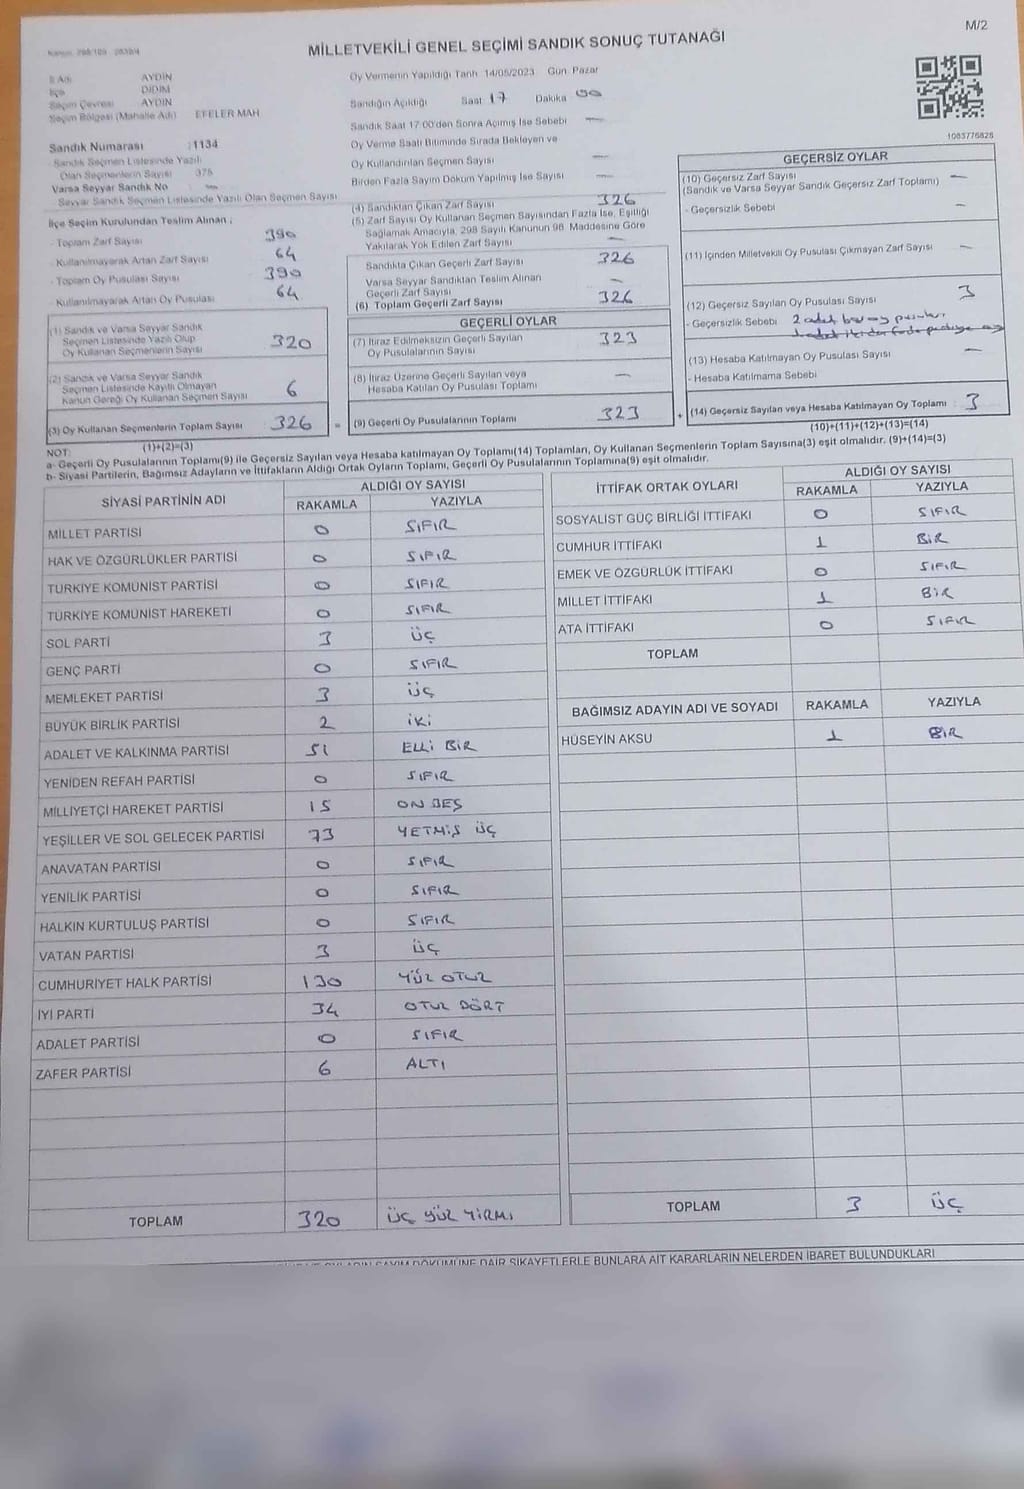 M/2
MİLLETVEKİLİ GENEL SEÇİMİ SANDIK SONUÇ TUTANAĞI
İl Adı AYDIN
İlçe DİDİM
Seçim Çevresi AYDIN
Seçim Bölgesi (Mahalle Adı) EFELER MAH
Sandık Numarası : 1134
- Sandık Seçmen Listesinde Yazılı
Olan Seçmenlerin Sayısı 375
Varsa Seyyar Sandık No —
Seyyar Sandık Seçmen Listesinde Yazılı Olan Seçmen Sayısı
İlçe Seçim Kurulundan Teslim Alınan ;
- Toplam Zarf Sayısı 390
- Kullanılmayarak Artan Zarf Sayısı 64
- Toplam Oy Pusulası Sayısı 390
- Kullanılmayarak Artan Oy Pusulası 64
(1) Sandık ve Varsa Seyyar Sandık
Seçmen Listesinde Yazılı Olup
Oy Kullanan Seçmenlerin Sayısı 320
(2) Sandık ve Varsa Seyyar Sandık
Seçmen Listesinde Kayıtlı Olmayan
Kanun Gereği Oy Kullanan Seçmen Sayısı 6
(3) Oy Kullanan Seçmenlerin Toplam Sayısı 326
(1)+(2)=(3)
Oy Vermenin Yapıldığı Tarih 14/05/2023 Gün Pazar
Sandığın Açıldığı Saat 17 Dakika 00
Sandık Saat 17:00'den Sonra Açılmış İse Sebebi —
Oy Verme Saati Bitiminde Sırada Bekleyen ve
Oy Kullandırılan Seçmen Sayısı —
Birden Fazla Sayım Döküm Yapılmış İse Sayısı —
(4) Sandıktan Çıkan Zarf Sayısı 326
(5) Zarf Sayısı Oy Kullanan Seçmen Sayısından Fazla İse, Eşitliği
Sağlamak Amacıyla, 298 Sayılı Kanunun 98. Maddesine Göre
Yakılarak Yok Edilen Zarf Sayısı —
Sandıkta Çıkan Geçerli Zarf Sayısı 326
Varsa Seyyar Sandıktan Teslim Alınan
Geçerli Zarf Sayısı —
(6) Toplam Geçerli Zarf Sayısı 326
GEÇERLİ OYLAR
(7) İtiraz Edilmeksizin Geçerli Sayılan
Oy Pusulalarının Sayısı 323
(8) İtiraz Üzerine Geçerli Sayılan veya
Hesaba Katılan Oy Pusulası Toplamı —
= (9) Geçerli Oy Pusulalarının Toplamı 323
1083776828
GEÇERSİZ OYLAR
(10) Geçersiz Zarf Sayısı —
(Sandık ve Varsa Seyyar Sandık Geçersiz Zarf Toplamı)
- Geçersizlik Sebebi —
(11) İçinden Milletvekili Oy Pusulası Çıkmayan Zarf Sayısı —
(12) Geçersiz Sayılan Oy Pusulası Sayısı 3
- Geçersizlik Sebebi 2 adet boş oy pusulası
(13) Hesaba Katılmayan Oy Pusulası Sayısı —
- Hesaba Katılmama Sebebi
+ (14) Geçersiz Sayılan veya Hesaba Katılmayan Oy Toplamı : 3
(10)+(11)+(12)+(13)=(14)
NOT:
a- Geçerli Oy Pusulalarının Toplamı(9) ile Geçersiz Sayılan veya Hesaba katılmayan Oy Toplamı(14) Toplamları, Oy Kullanan Seçmenlerin Toplam Sayısına(3) eşit olmalıdır. (9)+(14)=(3)
b- Siyasi Partilerin, Bağımsız Adayların ve İttifakların Aldığı Ortak Oyların Toplamı, Geçerli Oy Pusulalarının Toplamına(9) eşit olmalıdır.
SİYASİ PARTİNİN ADI ALDIĞI OY SAYISI
RAKAMLA YAZIYLA
MİLLET PARTİSİ 0 SIFIR
HAK VE ÖZGÜRLÜKLER PARTİSİ 0 SIFIR
TÜRKİYE KOMÜNİST PARTİSİ 0 SIFIR
TÜRKİYE KOMÜNİST HAREKETİ 0 SIFIR
SOL PARTİ 3 ÜÇ
GENÇ PARTİ 0 SIFIR
MEMLEKET PARTİSİ 3 ÜÇ
BÜYÜK BİRLİK PARTİSİ 2 İKİ
ADALET VE KALKINMA PARTİSİ 51 ELLİ BİR
YENİDEN REFAH PARTİSİ 0 SIFIR
MİLLİYETÇİ HAREKET PARTİSİ 15 ON BEŞ
YEŞİLLER VE SOL GELECEK PARTİSİ 73 YETMİŞ ÜÇ
ANAVATAN PARTİSİ 0 SIFIR
YENİLİK PARTİSİ 0 SIFIR
HALKIN KURTULUŞ PARTİSİ 0 SIFIR
VATAN PARTİSİ 3 ÜÇ
CUMHURİYET HALK PARTİSİ 130 YÜZ OTUZ
İYİ PARTİ 34 OTUZ DÖRT
ADALET PARTİSİ 0 SIFIR
ZAFER PARTİSİ 6 ALTI
TOPLAM 320 ÜÇ YÜZ YİRMİ
İTTİFAK ORTAK OYLARI ALDIĞI OY SAYISI
RAKAMLA YAZIYLA
SOSYALİST GÜÇ BİRLİĞİ İTTİFAKI 0 SIFIR
CUMHUR İTTİFAKI 1 BİR
EMEK VE ÖZGÜRLÜK İTTİFAKI 0 SIFIR
MİLLET İTTİFAKI 1 BİR
ATA İTTİFAKI 0 SIFIR
TOPLAM
BAĞIMSIZ ADAYIN ADI VE SOYADI RAKAMLA YAZIYLA
HÜSEYİN AKSU 1 BİR
TOPLAM 3 ÜÇ
SAYIM DÖKÜMÜNE DAİR ŞİKAYETLERLE BUNLARA AİT KARARLARIN NELERDEN İBARET BULUNDUKLARI